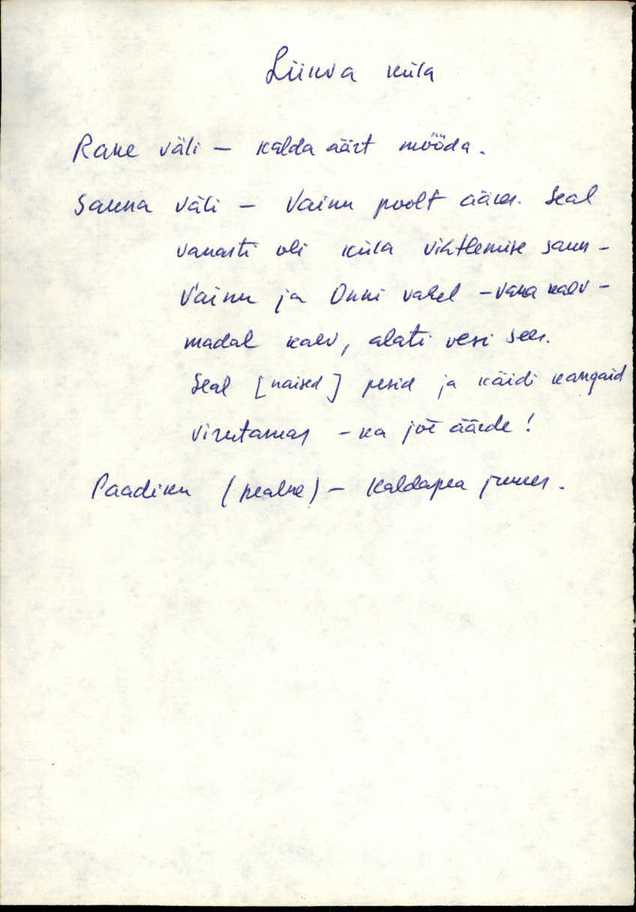 Liikva küla
Rane väli – kalda äärt mööda.
Sauna väli – Vainu poolt ääres. Seal
vanasti oli küla vihtlemise saun –
Vainu ja Onni vahel – vana kaev –
madal kaev, alati vesi sees.
Seal [naised] pesid ja käidi kangaid
virutamas – ka jõe äärde!
Paadiku (pealne) – Kaldapea juures.